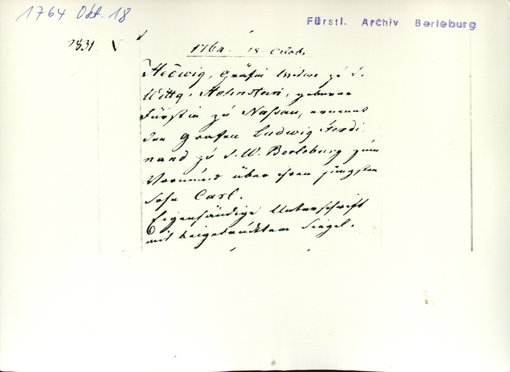 1764 Okt. 18
Fürstl. Archiv Berleburg
2831 V
1764. 18. Octob.
Hedwig, Gräfin Witwe zu S.
Wittg. Hohnstein, geborne
Fürstin zu Nassau, ernennt
den Grafen Ludwig Ferdi
nand zu S. W. Berleburg zum
Vormund über ihren jüngsten
Sohn Carl.
Eigenhändige Unterschrift
mit beigedrücktem Siegel.